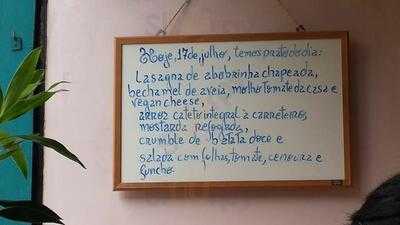 Hoje, 17 de julho, temos prato do dia:
Lasagna de abobrinha chapeada,
bechamel de aveia, molho tomate da casa e
vegan cheese,
arroz cateto integral à carreteiro,
mostarda refogada,
crumble de batata doce e
salada com folhas, tomate, cenoura e
funcho.